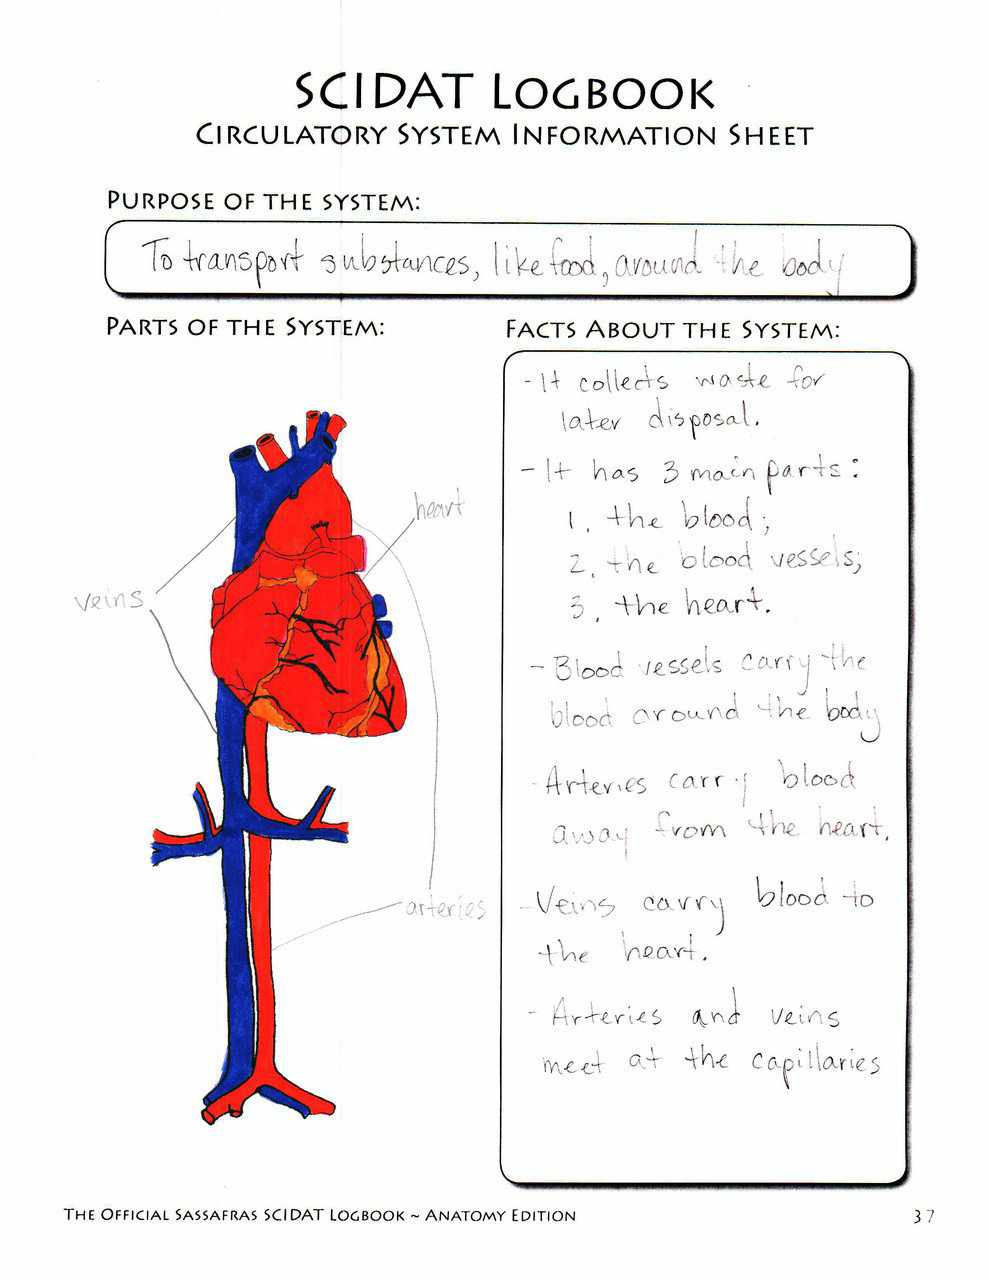 SCIDAT LOGBOOK
CIRCULATORY SYSTEM INFORMATION SHEET
PURPOSE OF THE SYSTEM:
To transport substances, like food, around the body
PARTS OF THE SYSTEM:
heart
veins
arteries
FACTS ABOUT THE SYSTEM:
- It collects waste for
later disposal.
- It has 3 main parts:
1. the blood;
2. the blood vessels;
3. the heart.
- Blood vessels carry the
blood around the body
- Arteries carry blood
away from the heart.
- Veins carry blood to
the heart.
- Arteries and veins
meet at the capillaries
THE OFFICIAL SASSAFRAS SCIDAT LOGBOOK ~ ANATOMY EDITION
37